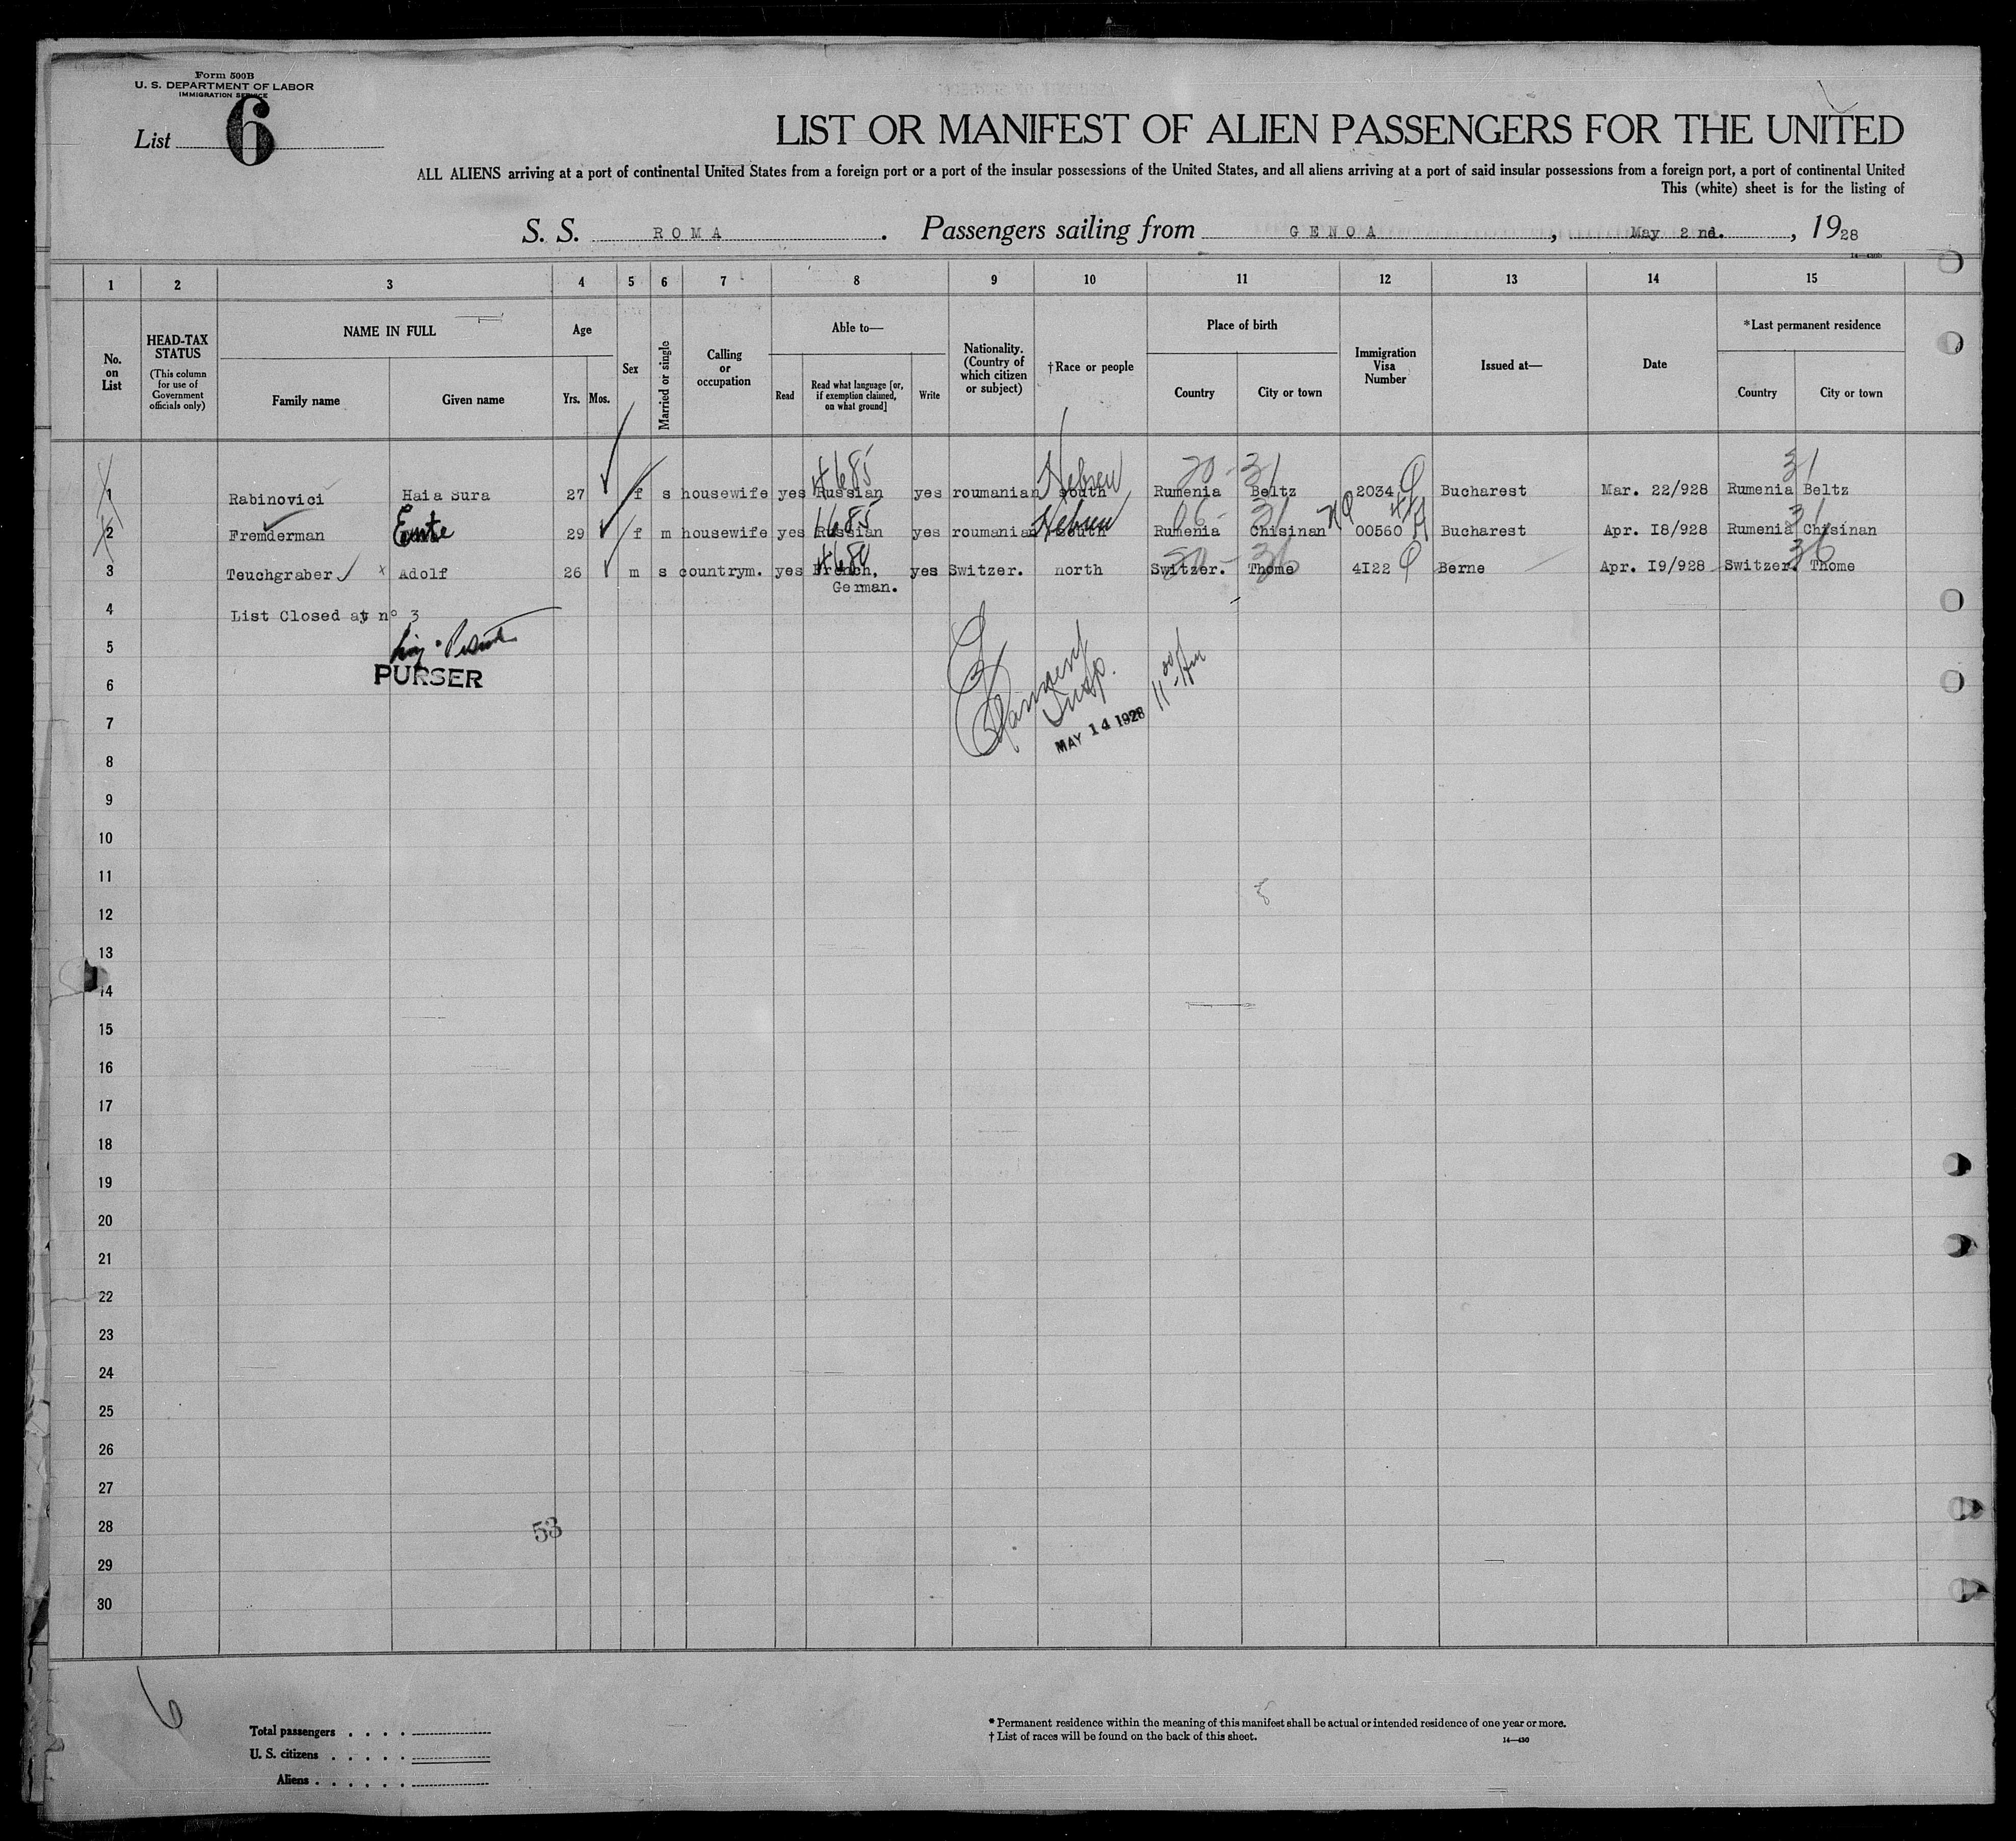 Form 500B
U. S. DEPARTMENT OF LABOR
IMMIGRATION SERVICE
List 6
LIST OR MANIFEST OF ALIEN PASSENGERS FOR THE UNITED
ALL ALIENS arriving at a port of continental United States from a foreign port or a port of the insular possessions of the United States, and all aliens arriving at a port of said insular possessions from a foreign port, a port of continental United
This (white) sheet is for the listing of
S. S. ROMA. Passengers sailing from GENOA, May 2 nd., 1928
1 2 3 4 5 6 7 8 9 10 11 12 13 14 15
No. on List
HEAD-TAX STATUS (This column for use of Government officials only)
NAME IN FULL
Family name Given name
Age
Yrs. Mos.
Sex
Married or single
Calling or occupation
Able to—
Read Read what language [or, if exemption claimed, on what ground] Write
Nationality. (Country of which citizen or subject)
†Race or people
Place of birth
Country City or town
Immigration Visa Number
Issued at—
Date
*Last permanent residence
Country City or town
4685 Hebrew 31 31
1 Rabinovici Haia Sura 27 f s housewife yes Russian yes roumanian south Rumenia Beltz 2034 Bucharest Mar. 22/928 Rumenia Beltz
Hebrew 31
2 Fremderman Ente 29 f m housewife yes Russian yes roumanian south Rumenia Chisinan 00560 Bucharest Apr. I8/928 Rumenia Chisinan
36 36
3 Teuchgraber x Adolf 26 m s countrym. yes French, yes Switzer. north Switzer. Thome 4I22 Berne Apr. I9/928 Switzer. Thome
German.
4 List Closed at nº 3
5
PURSER
6
Insp.
11 00 AM
7
MAY 14 1928
8
9
10
11
12
13
14
15
16
17
18
19
20
21
22
23
24
25
26
27
28
53
29
30
6
Total passengers . . . .
U. S. citizens . . . . .
Aliens . . . . . .
* Permanent residence within the meaning of this manifest shall be actual or intended residence of one year or more.
† List of races will be found on the back of this sheet.
14—430